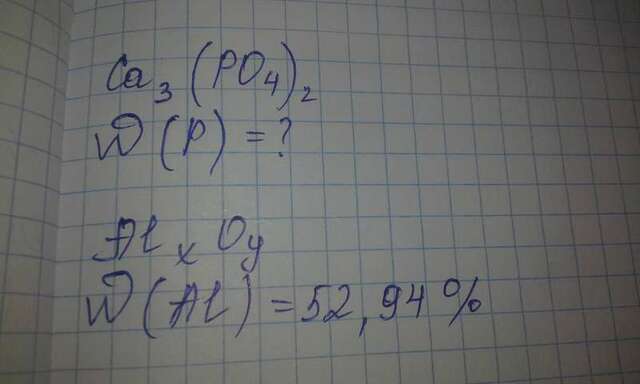 Ca₃(PO₄)₂
W(P) = ?
AlₓOᵧ
W(Al) = 52,94%